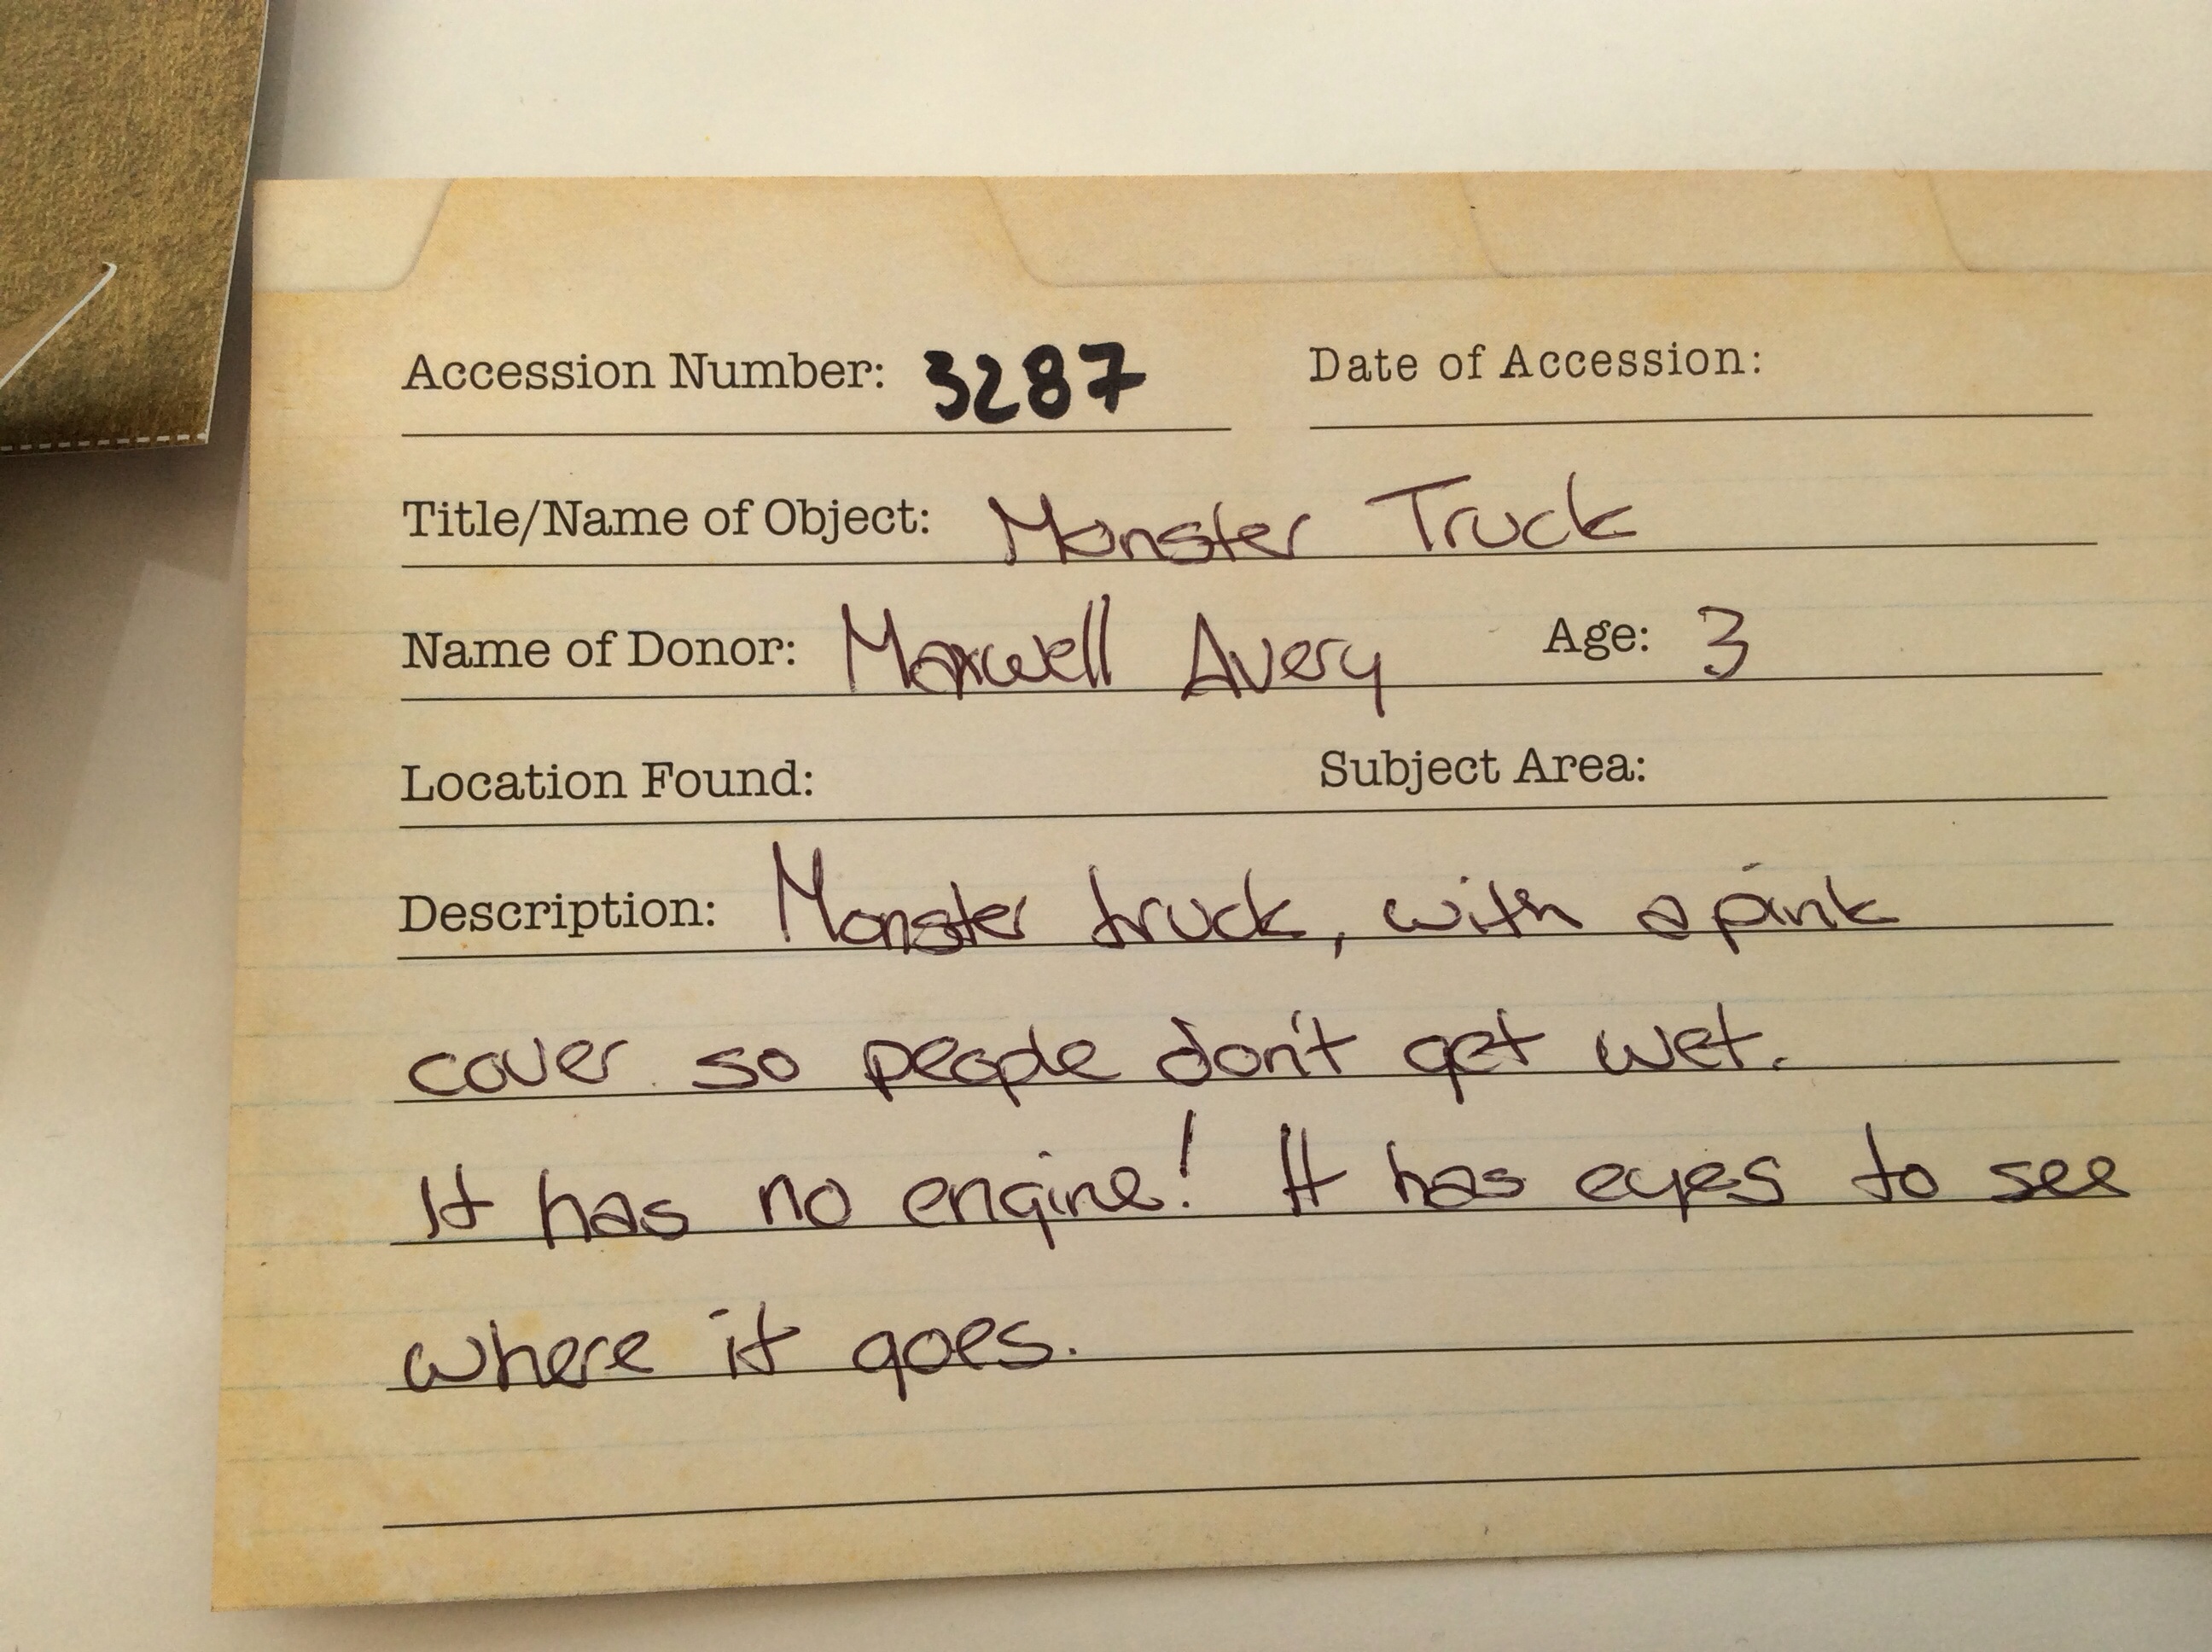 Accession Number: 3287 Date of Accession:
Title/Name of Object: Monster Truck
Name of Donor: Maxwell Avery Age: 3
Location Found: Subject Area:
Description: Monster truck, with a pink
cover so people don't get wet.
It has no engine! It has eyes to see
where it goes.